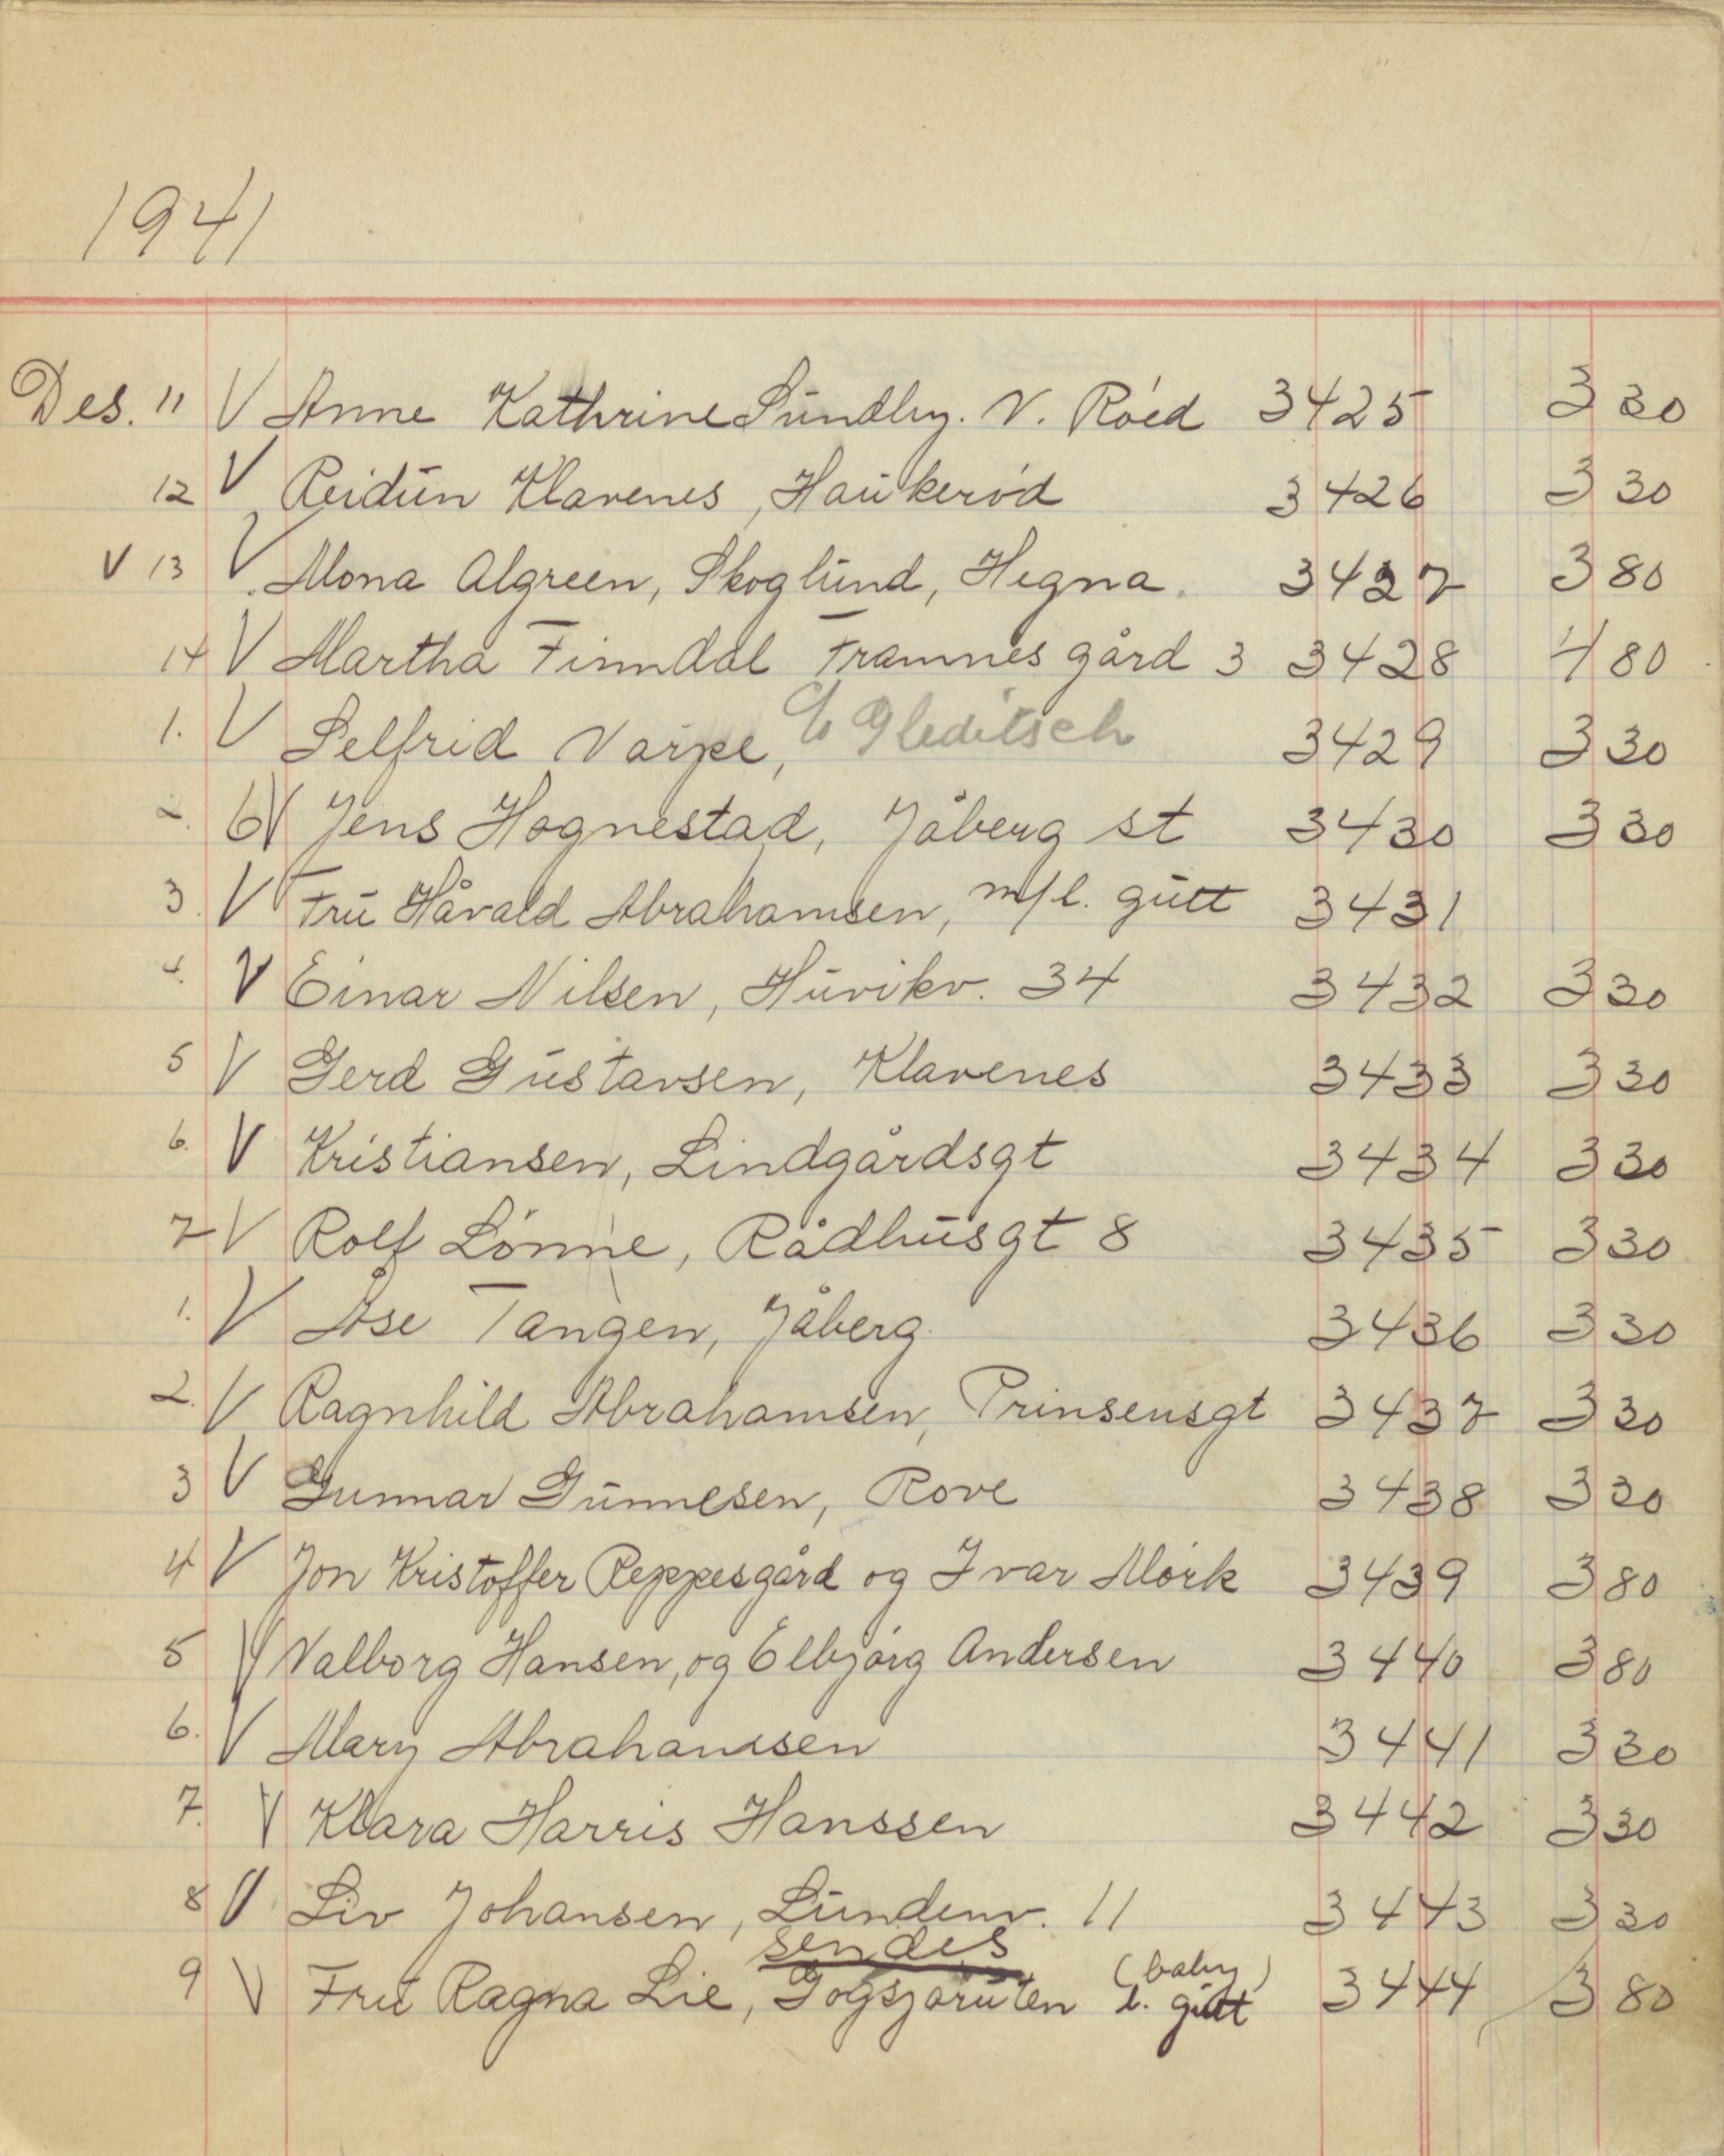 1941
Des. 11 V Anne Kathrine Sundby. V. Røed 3425 3 30
12 V Reidun Klavenes, Haukerød 3426 3 30
V 13 V Mona Algreen, Skoglund, Hegna. 3427 3 80
14 V Martha Finndal Framnes gård 3 3428 4 80
1. V Selfrid Varpe, c/o Gleditsch 3429 3 30
2. 6 V Jens Hognestad, Jåberg st 3430 3 30
3. V Fru Håvald Abrahamsen, m/l. gutt 3431
4. V Einar Nilsen, Huvikv. 34 3432 3 30
5 V Gerd Gustavsen, Klavenes 3433 3 30
6. V Kristiansen, Lindgårdsgt 3434 3 30
7 V Rolf Lønne, Rådhusgt 8 3435 3 30
1. V Åse Tangen, Jåberg. 3436 3 30
2. V Ragnhild Abrahamsen, Prinsensgt 3437 3 30
3 V Gunnar Gunnesen, Rove 3438 3 30
4 V Jon Kristoffer Reppesgård og Ivar Mørk 3439 3 80
5 V Valborg Hansen, og Elbjørg Andersen 3440 3 80
6. V Mary Abrahamsen 3441 3 30
7. V Klara Harris Hanssen 3442 3 30
8 V Liv Johansen, Lundenv. 11 3443 3 30
sendes (baby)
9 V Fru Ragna Lie, Gogsjøruten l. gutt 3444 3 80